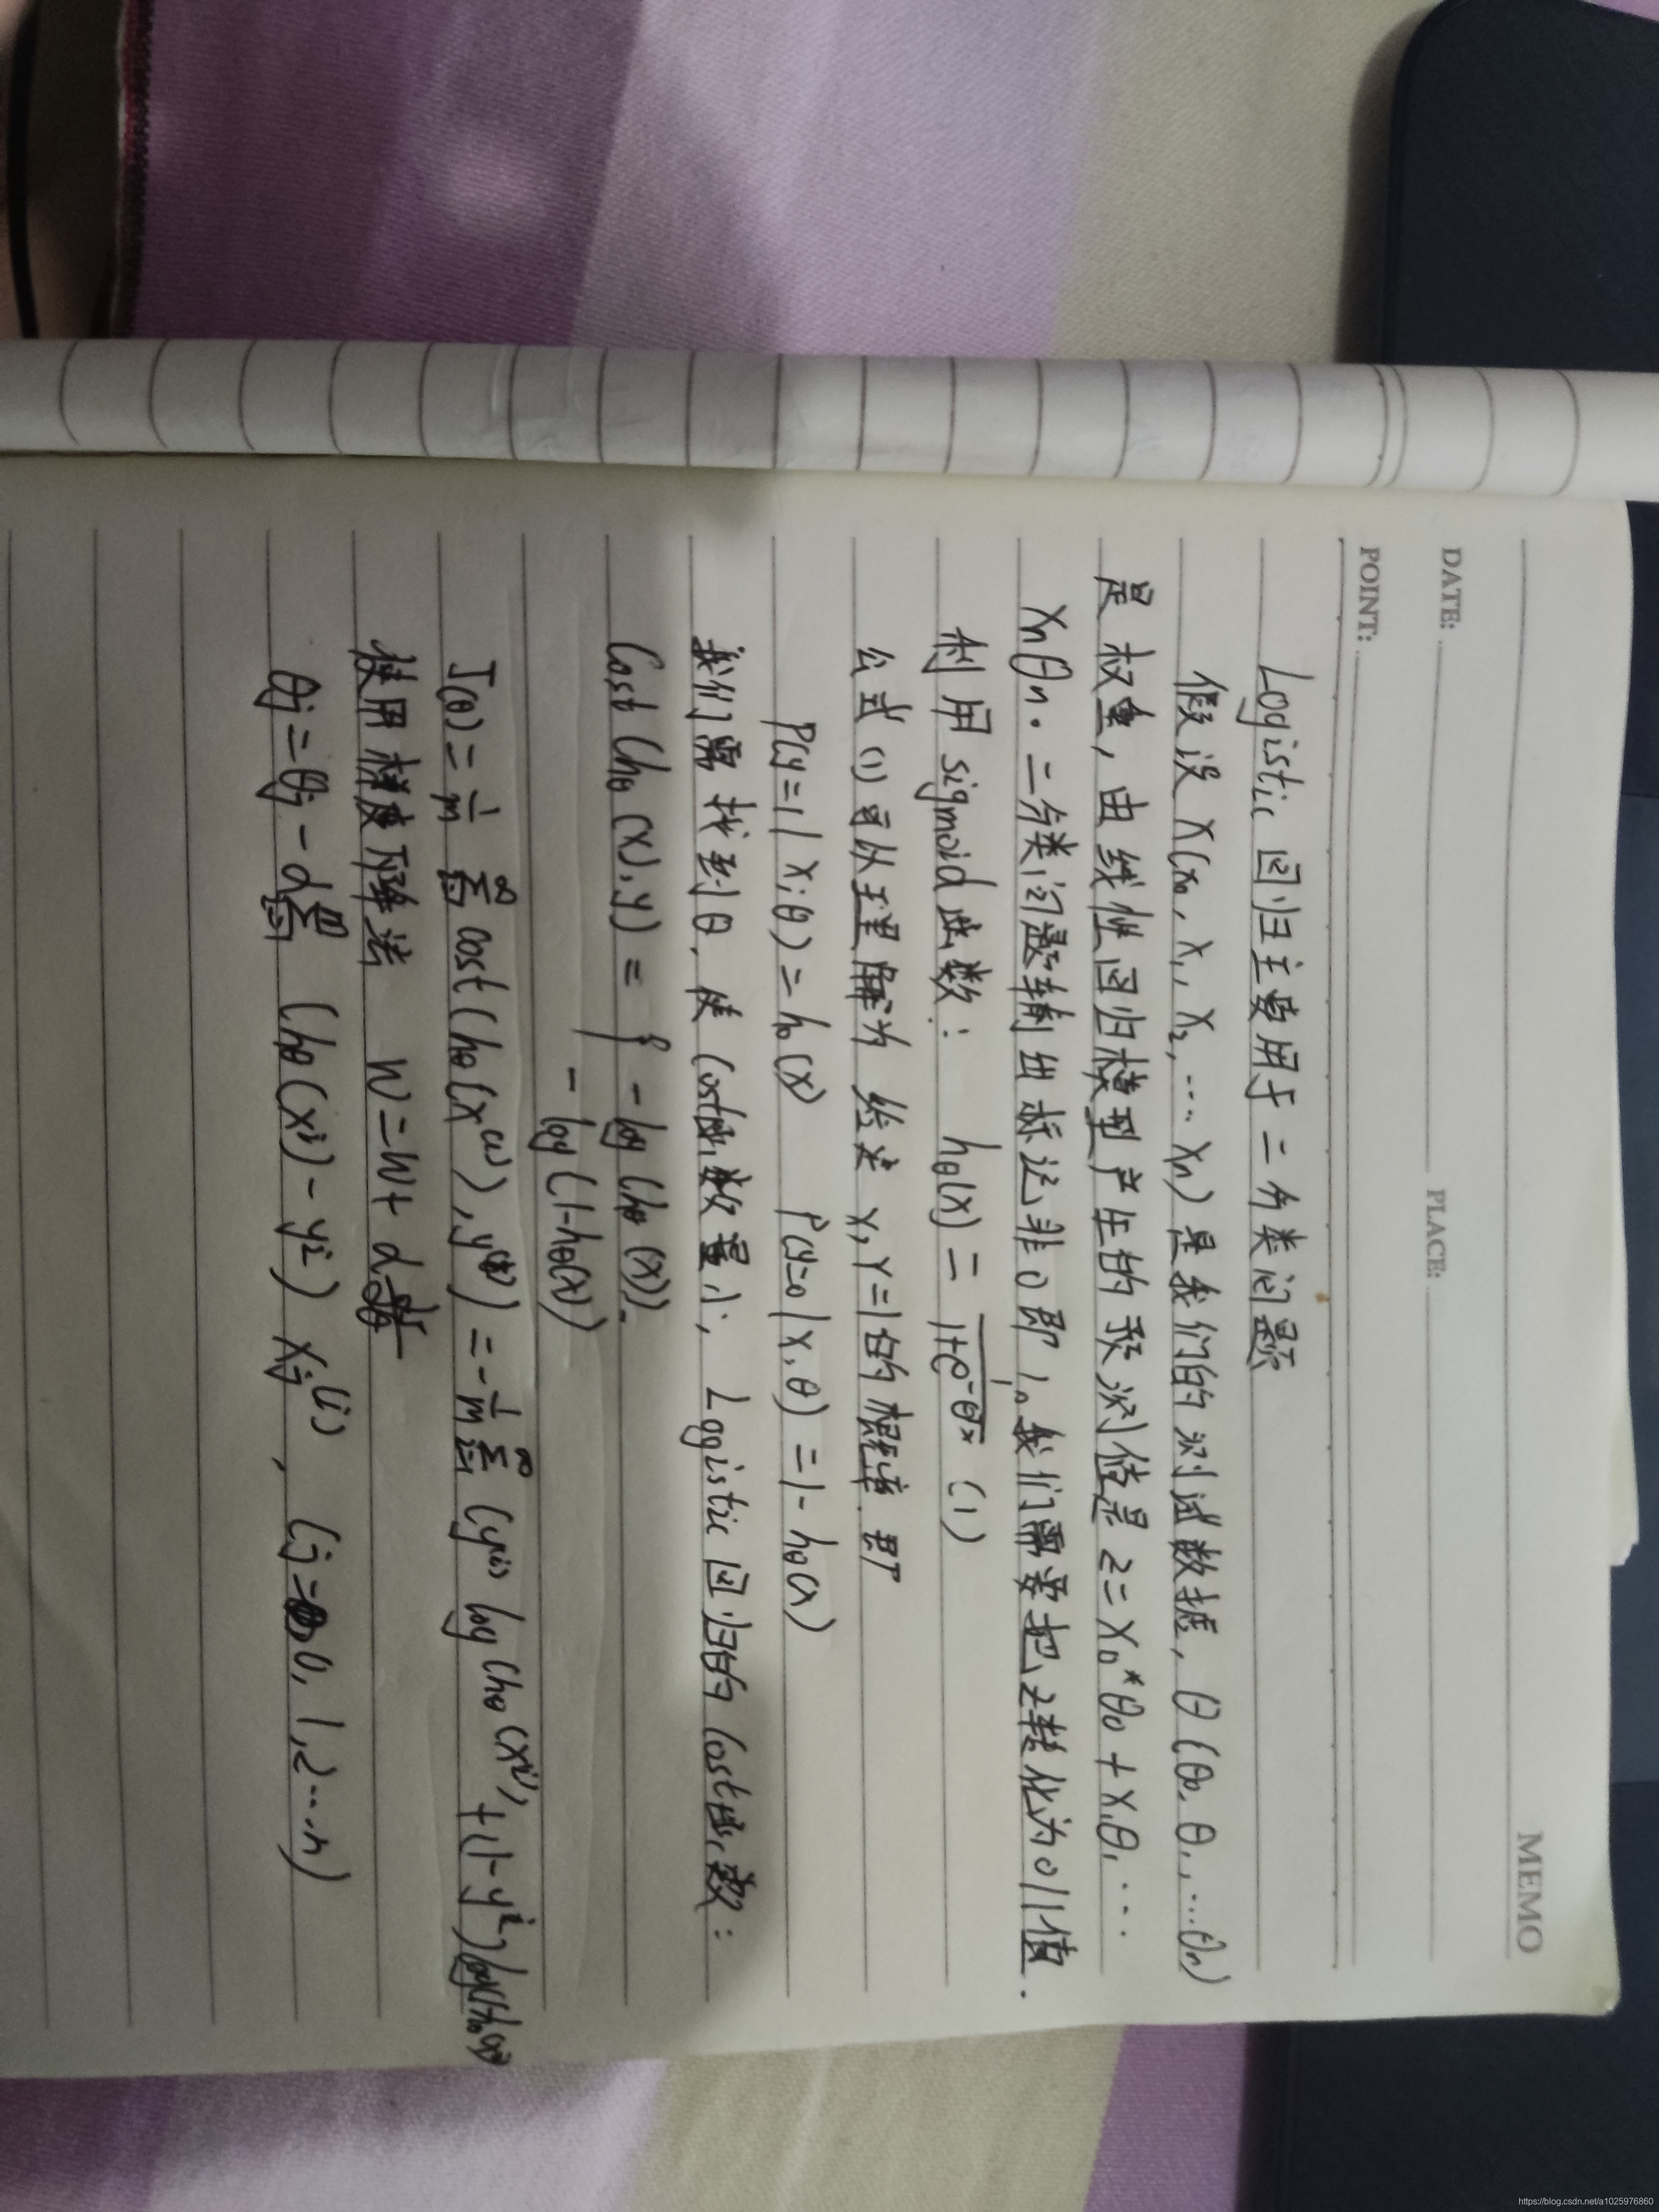 MEMO
DATE: PLACE:
POINT:
Logistic 回归主要用于二分类问题
假设 X(x₀, x₁, x₂, ... xn) 是我们的测试数据, θ (θ₀, θ₁, ... θn)
是权重, 由线性回归模型产生的预测值是 z = x₀*θ₀ + x₁θ₁ ...
xnθn. 二分类问题输出标记非0即1。我们需要把z转化为0/1值.
利用 sigmoid 函数: hθ(x) = 1/(1+e^(-θᵀx)) (1)
公式 (1) 可以理解为 给定 x, y=1的概率 即
P(y=1 | x; θ) = hθ(x) P(y=0 | x, θ) = 1 - hθ(x)
我们需找到θ, 使 Cost函数最小, Loggistic 回归的 Cost函数:
Cost (hθ (x), y) = { - log (hθ (x)).
- log (1-hθ(x))
J(θ) = 1/m Σ cost (hθ(x⁽ⁱ⁾), y⁽ⁱ⁾) = - 1/m Σ (y⁽ⁱ⁾ log (hθ (xⁱ), + (1-yⁱ) log(1-hθ(xⁱ)
使用梯度下降法 W = W + α
θj = θj - α (hθ(xⁱ) - yⁱ) xj⁽ⁱ⁾, (j = 0, 1, 2 ... n)
https://blog.csdn.net/a1025976860